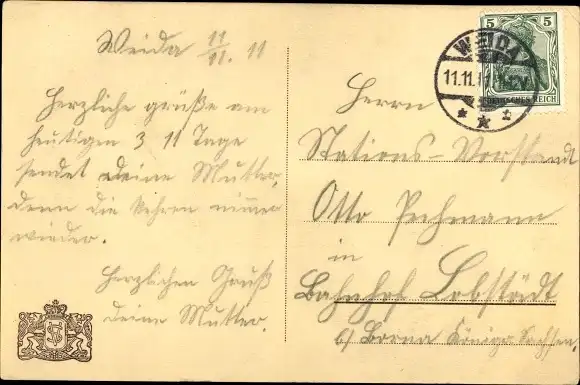 Weida 11/11. 11
Herzliche grüße am
heutigen 3 11 Tage
sendet deine Mutter,
denn die kehren nimmer
wieder.
Herzlichen Gruß
deine Mutter.
5 5
DEUTSCHES REICH
WEIDA
11.11.11
Herrn
Stations-Vorstandt
Otto Pechmann
in
Bahnhof Lobstädt
b/ Borna Königr. Sachsen.